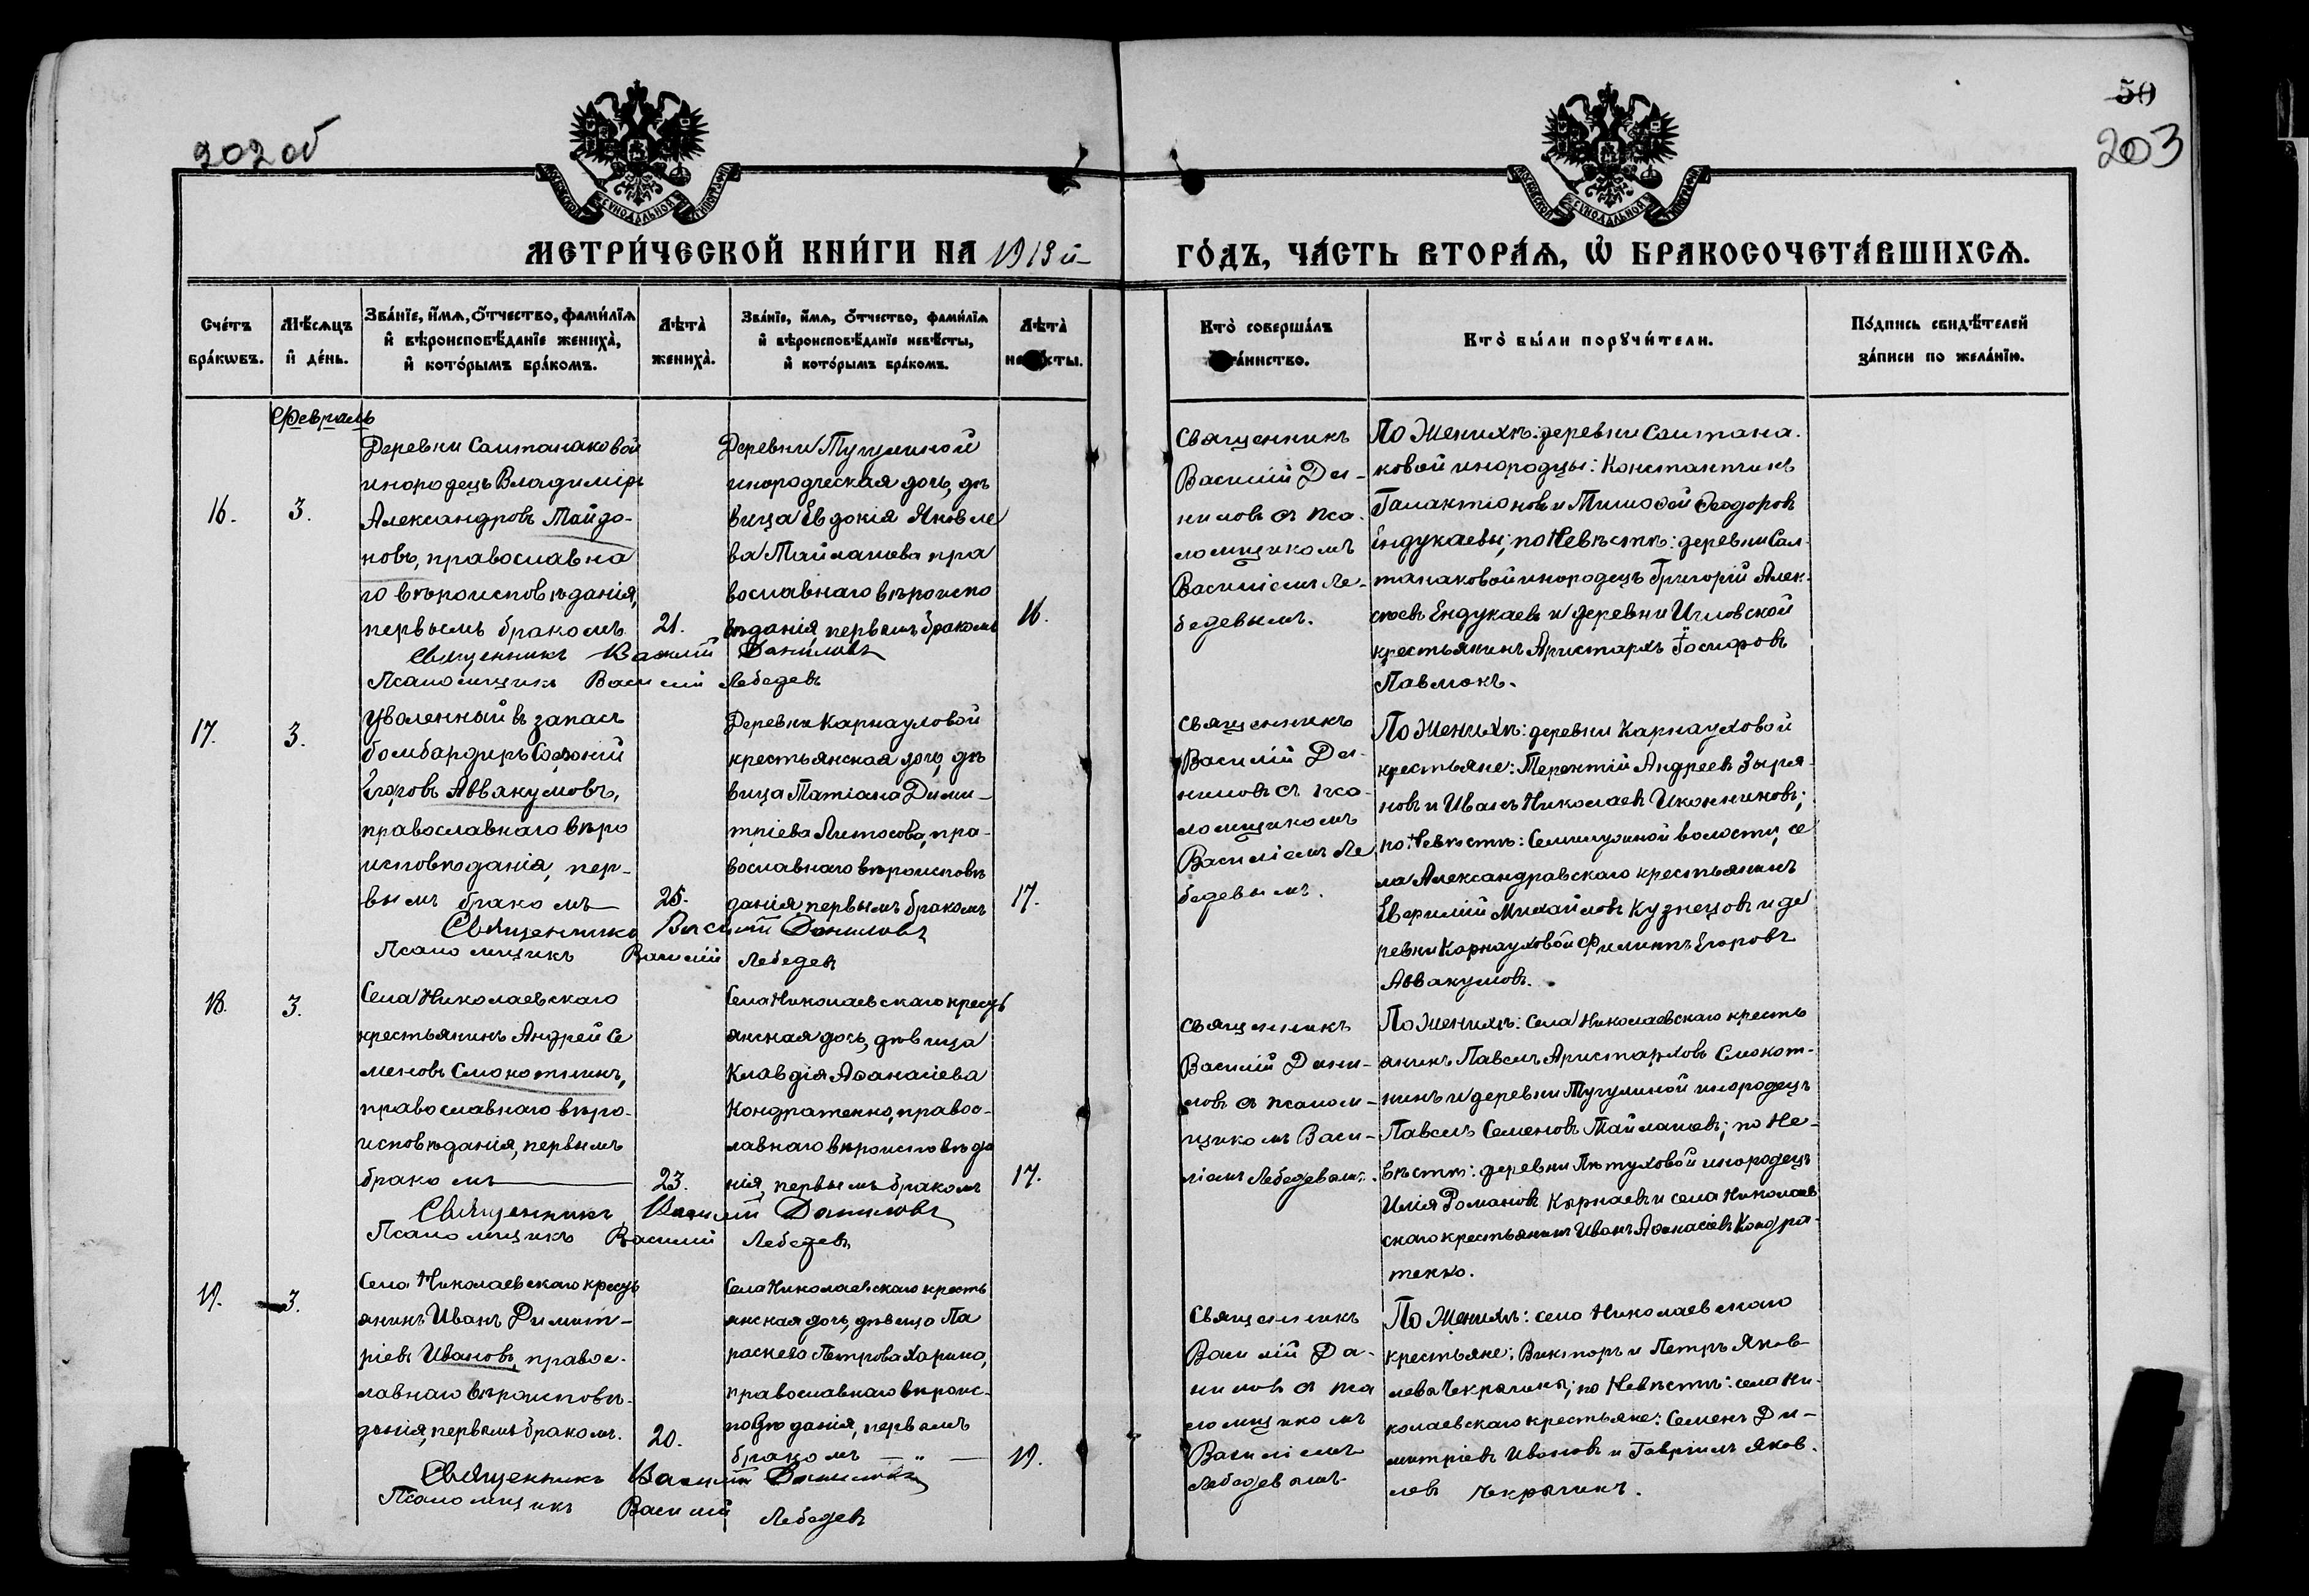 202 об
50
203
МЕТРИ́ЧЕСКОЙ КНИ́ГИ НА 1913 й
ГО́ДЪ, ЧА́СТЬ ВТОРА́Ѧ, Ѽ БРАКОСОЧЕТА́ВШИХСѦ.
Сче́тъ бра́кѡвъ.
Мѣ́сѧцъ и҆ де́нь.
Зва́нїе, и҆́мѧ, о҆́тчество, фами́лїѧ и҆ вѣроисповѣ́данїе жениха̀, и҆ кото́рымъ бра́комъ.
Лѣта̀ жениха̀.
Зва́нїе, и҆́мѧ, о҆́тчество, фами́лїѧ и҆ вѣроисповѣ́данїе невѣ́сты, и҆ кото́рымъ бра́комъ.
Лѣта̀ невѣ́сты.
Кто̀ соверша́лъ та́инство.
Кто̀ бы́ли порꙋчи́тели.
По́дпись свидѣ́телей за́писи по жела́нїю.
Февраль
16.
3.
Деревни Салтанаковой
инородецъ Владиміръ
Александровъ Майдо-
новъ, православна
го вѣроисповѣданія,
первымъ бракомъ
21.
Деревни Тугулиной
инородческая дочь, дѣ
вица Евдокія Яковле
ва Таймашева пра
вославнаго вѣроиспо
вѣданія, первымъ бракомъ
16.
Священникъ Василій Даниловъ
Псаломщикъ Василій Лебедевъ
Священникъ
Василій Да-
ниловъ съ пса-
ломщикомъ
Василіемъ Ле-
бедевымъ.
По Женихѣ: деревни Салтана-
ковой инородцы: Константинъ
Галактіоновъ и Тимофей Феодоровъ
Ендукаевы; по Невѣстѣ: деревни Сал-
танаковой инородецъ Григорій Алек-
сѣевъ Ендукаевъ и деревни Игловской
крестьянинъ Аристархъ Іосифовъ
Павлюкъ.
17.
3.
Уволенный въ запасъ
бомбардиръ Софоній
Егоровъ Аввакумовъ,
православнаго вѣро
исповѣданія, пер-
вымъ бракомъ
25.
Деревни Карнауховой
крестьянская дочь, дѣ
вица Татіана Дими-
тріева Литосова, пра-
вославнаго вѣроисповѣ
данія, первымъ бракомъ
17.
Священникъ Василій Даниловъ
Псаломщикъ Василій Лебедевъ
Священникъ
Василій Да-
ниловъ съ пса-
ломщикомъ
Василіемъ Ле
бедевымъ.
По Женихѣ: деревни Карнауховой
крестьяне: Терентій Андреевъ Зыря-
новъ и Иванъ Николаевъ Иконниковъ;
по Невѣстѣ: Семилужной волости, се
ла Александравскаго крестьянинъ
Евфимій Михайловъ Кузнецовъ и де
ревни Карнауховой Филиппъ Егоровъ
Аввакумовъ.
18.
3.
Села Николаевскаго
крестьянинъ Андрей Се
меновъ Смокотнинъ,
православнаго вѣро-
исповѣданія, первымъ
бракомъ
23.
Села Николаевскаго кресть
янская дочь, дѣвица
Клавдія Афанасіева
Кондратенко, правос-
лавнаго вѣроисповѣда
нія, первымъ бракомъ
17.
Священникъ Василій Даниловъ
Псаломщикъ Василій Лебедевъ
Священникъ
Василій Дани-
ловъ съ псалом-
щикомъ Васи-
ліемъ Лебедевымъ.
По Женихѣ: Села Николаевскаго кресть
янинъ Павелъ Аристарховъ Смокот-
нинъ и деревни Тугулиной инородецъ
Павелъ Семеновъ Таймашевъ; по Не-
вѣстѣ: деревни Пѣтуховой инородецъ
Илія Романовъ Кырнаевъ и села Николаев
скаго крестьянинъ Иванъ Афанасіевъ Кондра-
тенко.
19.
3.
Села Николаевскаго кресть
янинъ Иванъ Димит-
ріевъ Ивановъ, правос-
лавнаго вѣроисповѣ-
данія, первымъ бракомъ.
20.
Села Николаевскаго кресть
янская дочь, дѣвица Па
раскева Петрова Харина,
православнаго вѣроис-
повѣданія, первымъ
бракомъ — „ —
19.
Священникъ Василій Даниловъ
Псаломщикъ Василій Лебедевъ
Священникъ
Василій Да-
ниловъ съ пса
ломщикомъ
Василіемъ
Лебедевымъ
По Женихѣ: села Николаевскаго
крестьяне: Викторъ и Петръ Яков-
левы Чекрыгины; по Невѣстѣ: села Ни-
колаевскаго крестьяне: Семенъ Ди-
митріевъ Ивановъ и Гавріилъ Яков-
левъ Чекрыгинъ.